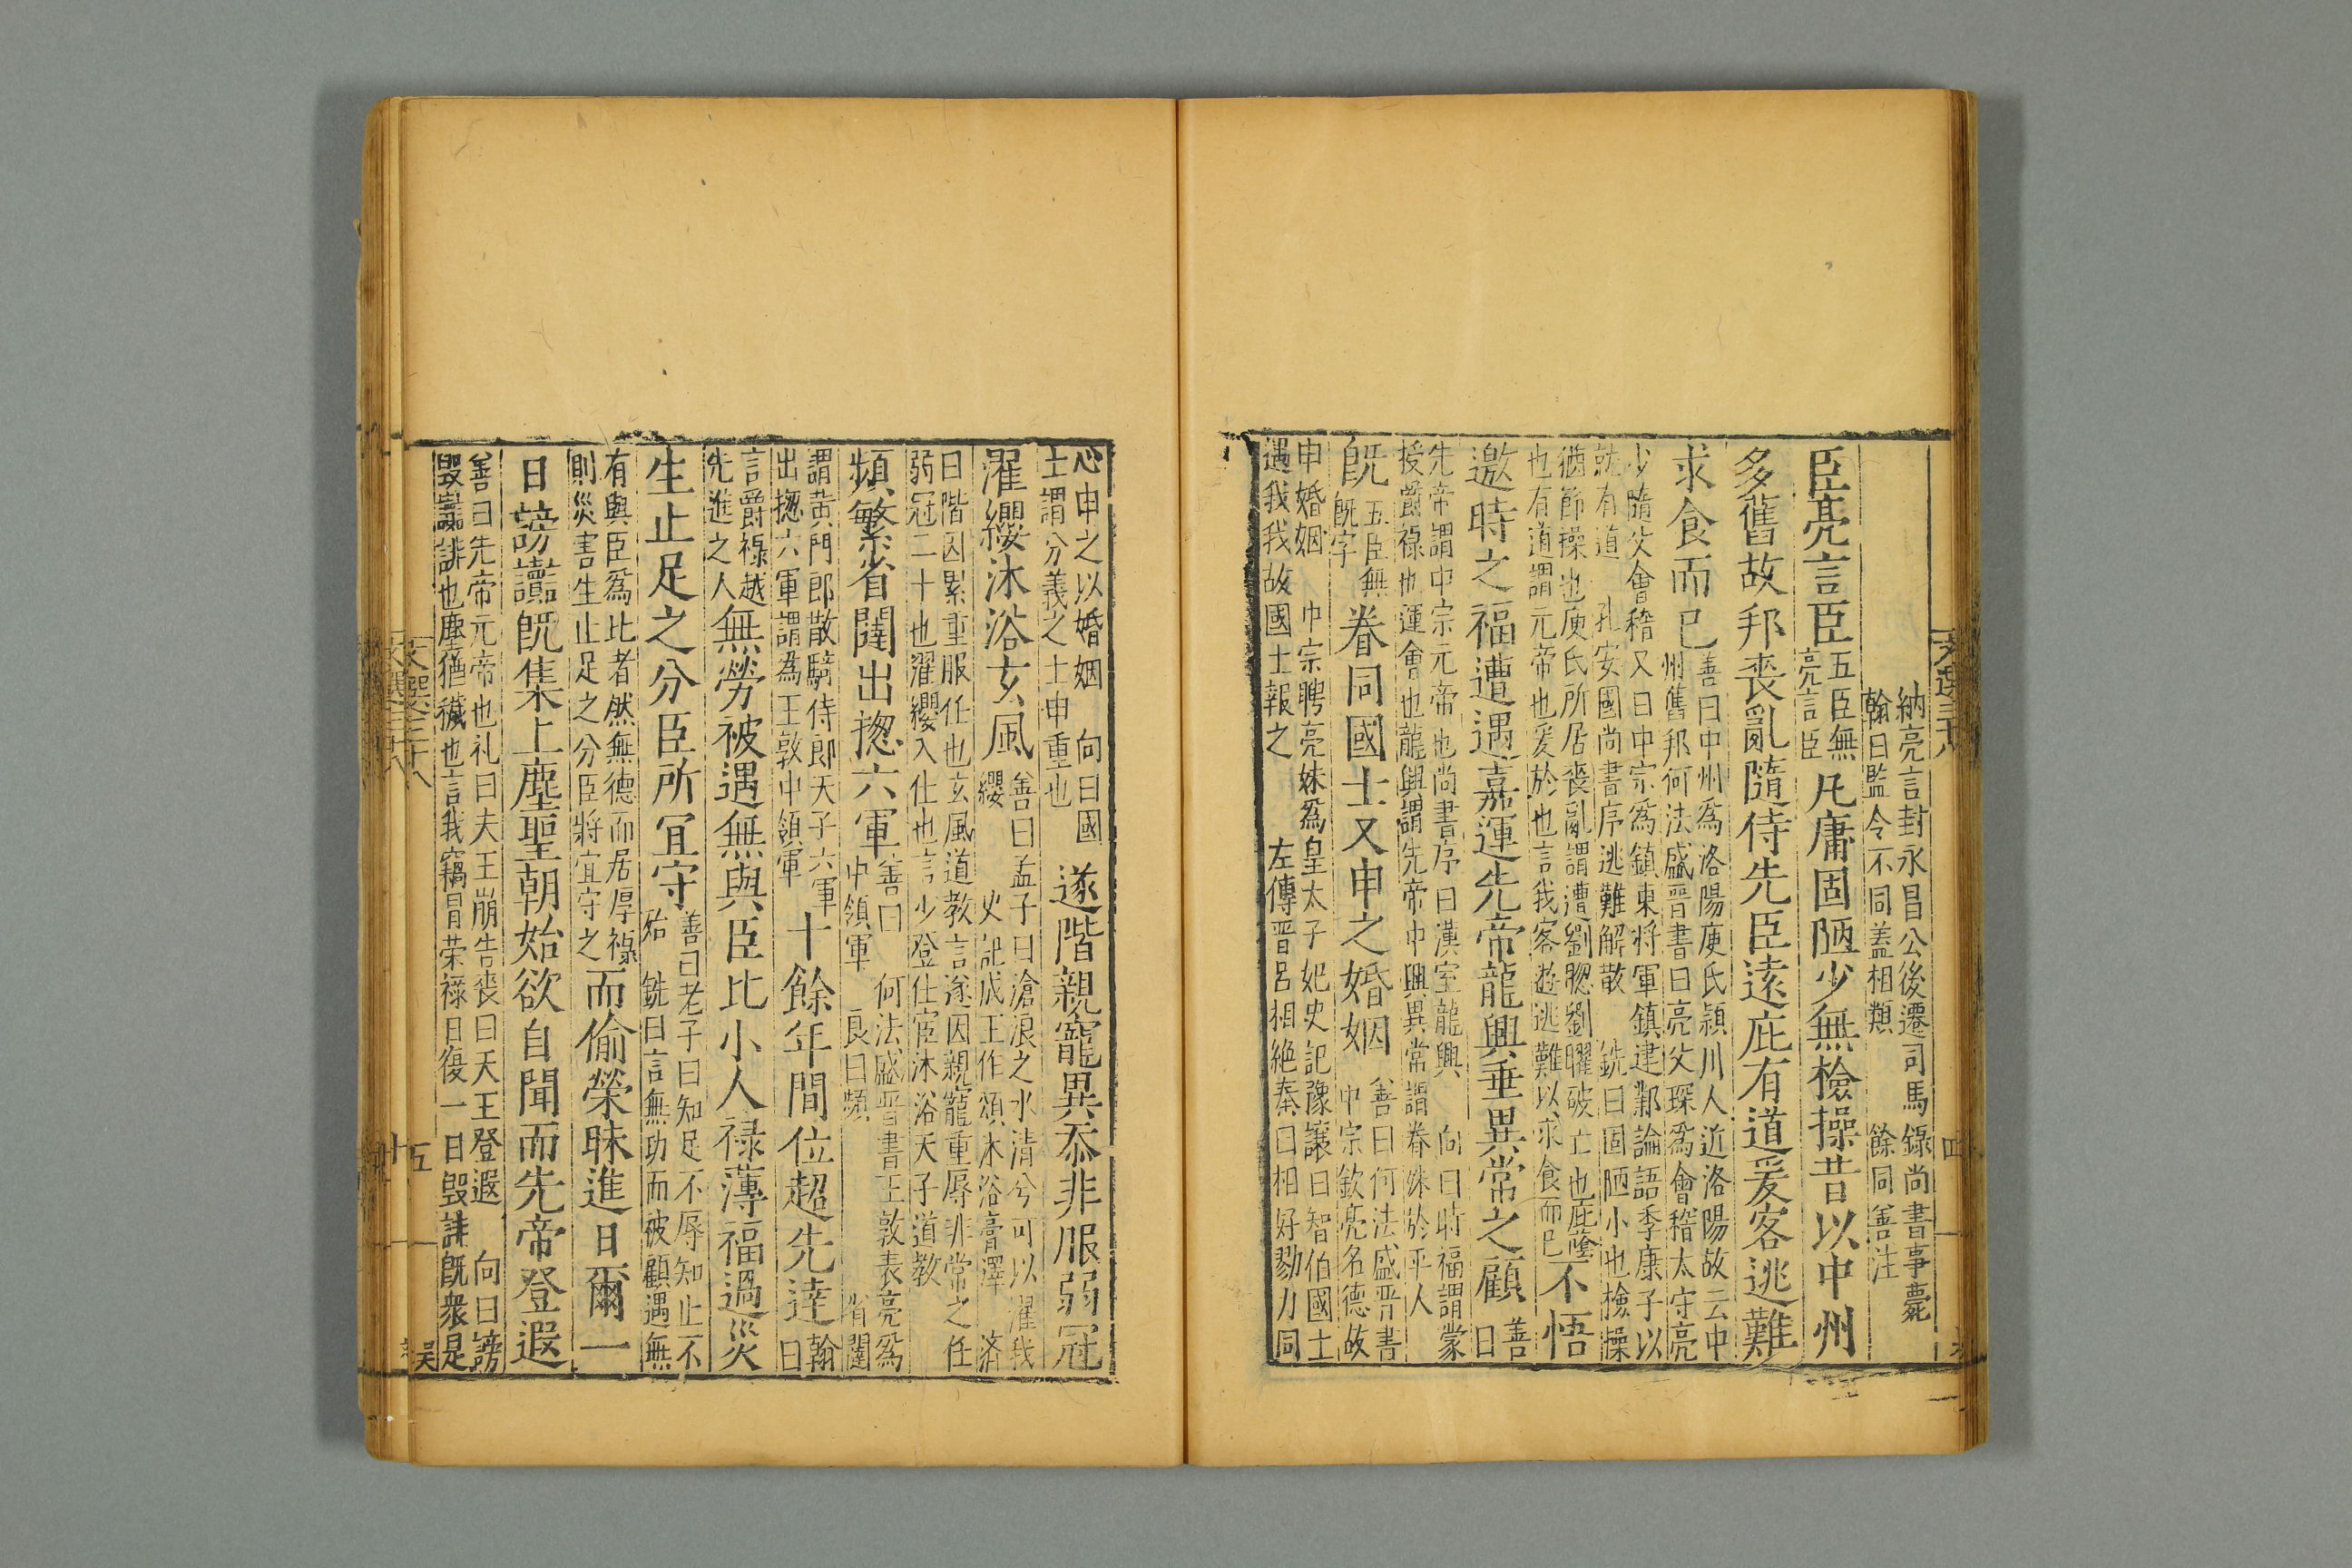 納言封永昌公後遷司馬錄尚書事薨
翰曰監令不同蓋相類 餘同善注
臣亮言臣五臣無亮言臣凡庸固陋少無檢操昔以中州
多舊故邦喪亂隨侍先臣遠庇有道爰客逃難
求食而已善曰中州爲洛陽庾氏潁川人近洛陽故云中
州舊邦何法盛晋書曰亮父琛爲會稽太守亮
少隨父會稽又曰中宗爲鎮東將軍鎮建鄴論語季康子以
就有道 孔安國尚書序逃難解散 銑曰固陋小也檢操
猶節操也庾氏所居喪亂謂遭劉聦劉曜破亡也庇蔭
也有道謂元帝也爰於也言我客遊逃難以求食而已
不悟
邀時之福遭遇嘉運先帝龍興垂異常之顧善曰
先帝謂中宗元帝也尚書序曰漢室龍興 向曰時福謂蒙
授爵祿也運會也龍興謂先帝中興異常謂眷殊於平人
旣五臣無旣字眷同國士又申之婚姻善曰何法盛晋書
中宗欽亮名德故
申婚姻 中宗聘亮妹爲皇太子妃史記豫讓曰智伯國士
遇我我故國士報之 左傳晋呂相絶秦曰相好勠力同
心申之以婚姻 向曰國
士謂分義之士申重也
遂階親寵異忝非服弱冠
濯纓沐浴玄風善曰孟子曰滄浪之水清兮可以濯我
纓 史記成王作頌沐浴膏澤 濟
曰階因累重服任也玄風道教言遂因親寵重辱非常之任
弱冠二十也濯纓入仕也言少登仕宦沐浴天子道教
頻繁省闥出揔六軍善曰 何法盛晋書王敦表亮爲
中領軍 良曰頻 省闥
謂黃門郎散騎侍郎天子六軍
出揔六軍謂爲王敦中領軍
十餘年間位超先達翰曰
言爵祿越
先進之人
無勞被遇無與臣比小人祿薄福過災
生止足之分臣所宜守善曰老子曰知足不辱知止不
殆 銑曰言無功而被顧遇無
有與臣爲比者然無德而居厚祿
則災害生止足之分臣將宜守之
而偷榮昧進日爾一
日謗讟旣集上塵聖朝始欲自聞而先帝登遐
善曰先帝元帝也礼曰天王崩告喪曰天王登遐 向曰謗
毀讟誹也塵猶穢也言我竊冒荣祿日復一日毀誹旣衆是